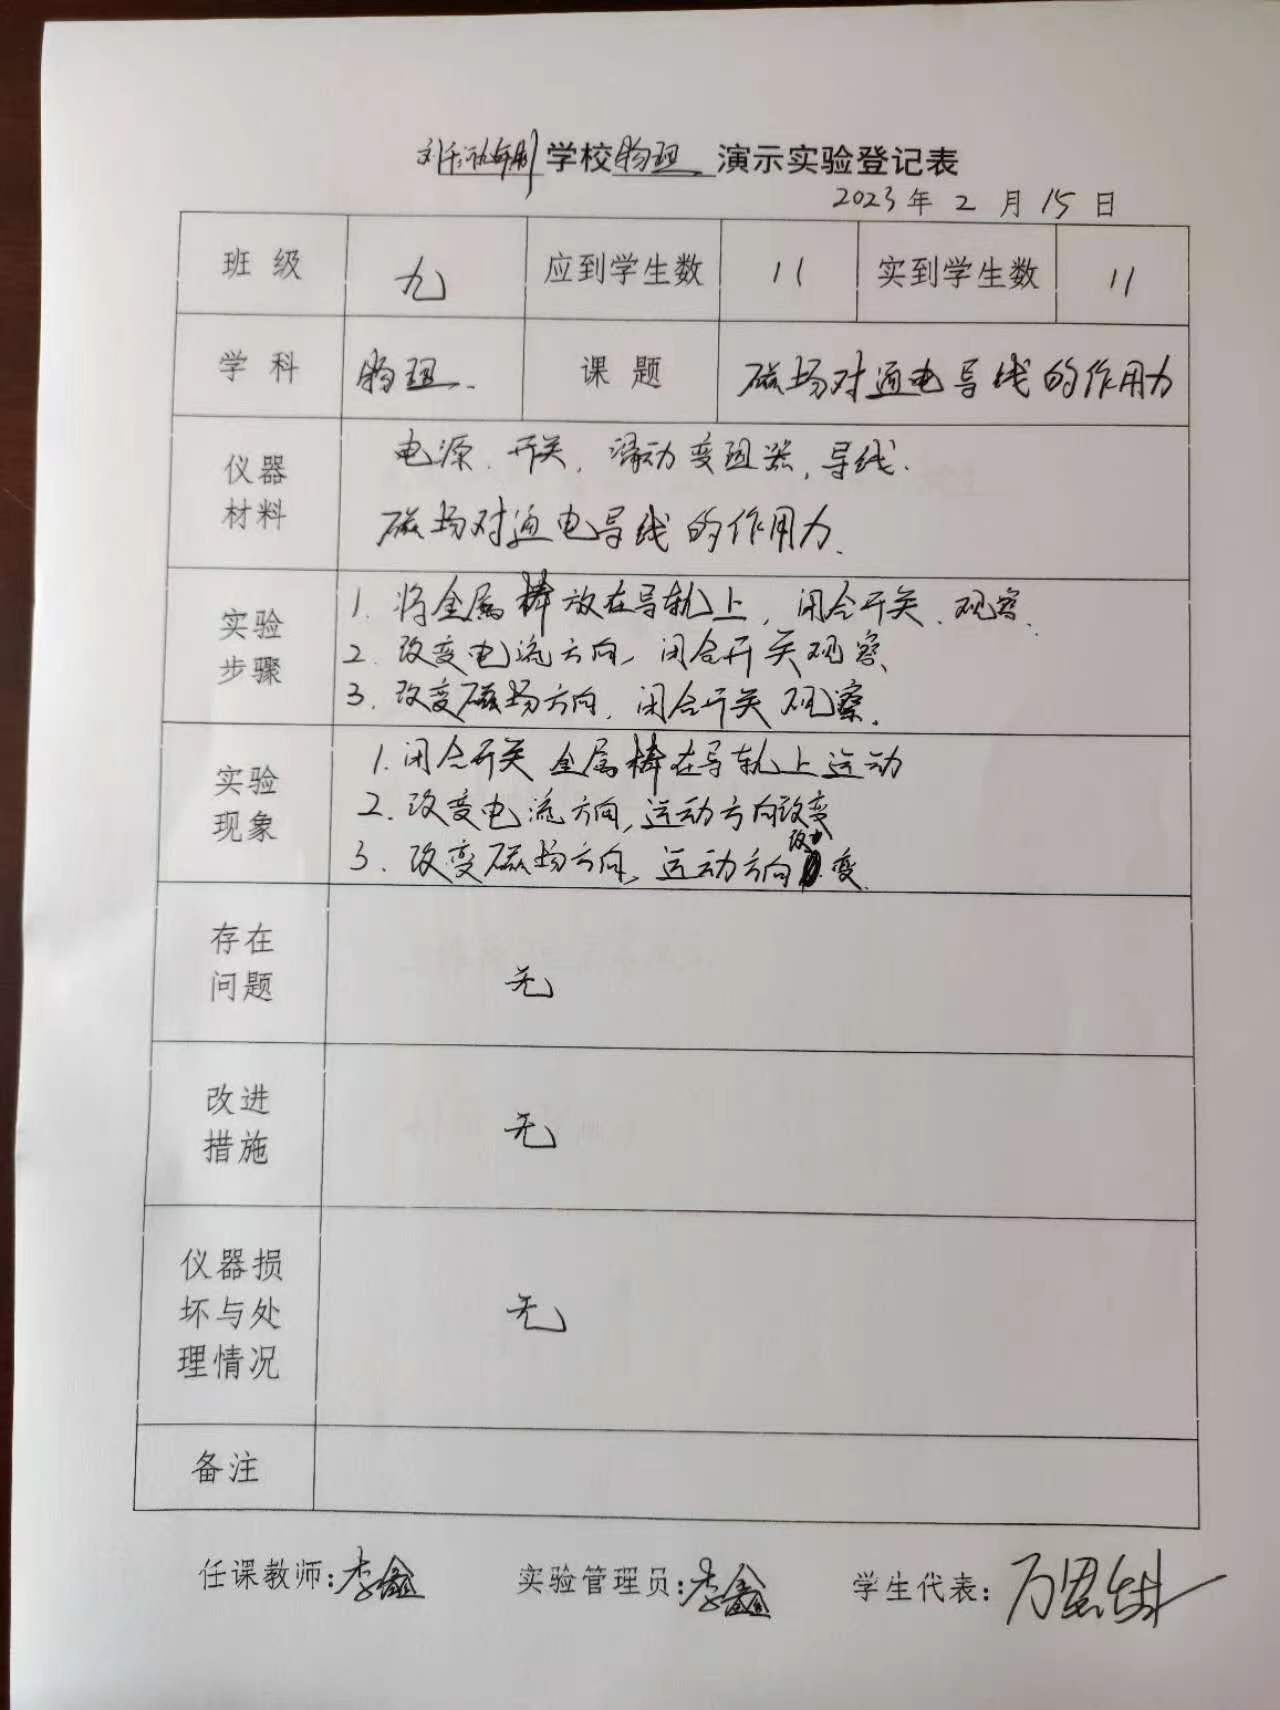 学校物理 演示实验登记表
2023年2月15日
班 级 九 应到学生数 11 实到学生数 11
学 科 物理. 课 题 磁场对通电导线的作用力
仪器
材料
电源、开关, 滑动变阻器, 导线.
磁场对通电导线的作用力.
实验
步骤
1. 将金属棒放在导轨上, 闭合开关、观察.
2. 改变电流方向, 闭合开关观察
3. 改变磁场方向, 闭合开关 观察.
实验
现象
1. 闭合开关 金属棒在导轨上运动
2. 改变电流方向, 运动方向改变
3. 改变磁场方向, 运动方向改变.
存在
问题
无
改进
措施
无
仪器损
坏与处
理情况
无
备注
任课教师:李鑫 实验管理员:李鑫 学生代表: